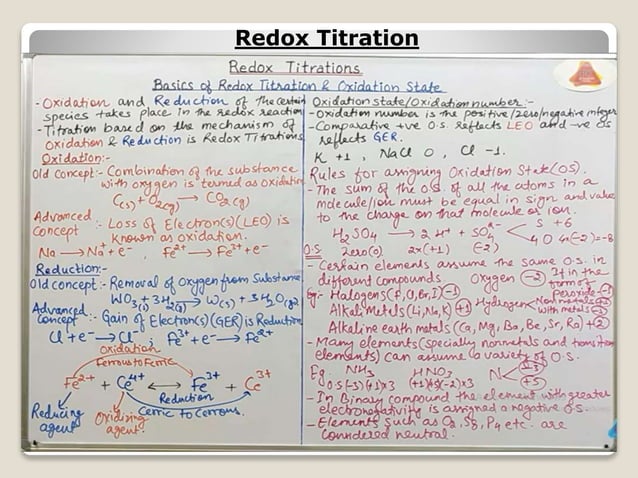 Redox Titration
Redox Titrations
Basics of Redox Titration & Oxidation State
- Oxidation and Reduction of the certain
species takes place in the redox reaction
- Titration based on the mechanism of
Oxidation & Reduction is Redox Titrations
Oxidation:-
Old Concept:- Combination of the substance
with oxygen is termed as oxidation
C(s) + O2(g) → CO2(g)
Advanced Concept :- Loss of Electron(s) (LEO) is
known as oxidation.
Na → Na+ + e-, Fe2+ → Fe3+ + e-
Reduction:-
Old concept:- Removal of Oxygen from Substance
WO3(s) + 3H2(g) → W(s) + 3H2O(g)
Advanced Concept :- Gain of Electron(s) (GER) is Reduction
Cl + e- → Cl-, Fe3+ + e- → Fe2+
Oxidation
Ferrous to Ferric
Fe2+ + Ce4+ ↔ Fe3+ + Ce3+
Reduction
Ceric to Cerrous.
Reducing agent
Oxidising agent.
Oxidation state/Oxidation number:-
- Oxidation number is the positive/zero/negative integer
- Comparative +ve O.S. reflects LEO and -ve OS
reflects GER.
K +1, NaCl 0, Cl -1.
Rules for assigning Oxidation State (OS).
- The sum of the O.S. of all the atoms in a
molecule/ion must be equal in sign and value
to the charge on that molecule or ion.
H2SO4 → 2H+ + SO4 2- < S +6
4 O 4x(-2)=-8
O.S. Zero(0) 2x(+1) (-2)
- Certain elements assume the same O.S. in
different compounds Oxygen -2 If in the form of Peroxide -1
Eg:- Halogens (F, Cl, Br, I) -1 Hydrogen < Non metals +1
with metals -1
Alkali Metals (Li, Na, K) +1
Alkaline earth metals (Ca, Mg, Ba, Be, Sr, Ra) +2
- Many elements (specially nonmetals and transition
elements) can assume a variety of O.S.
Eg. NH3 HNO3 N < -3
+5
O.S (-3) (+1)x3 (+1)(+5)(-2)x3
- In Binary compound the element with greater
electronegativity is assigned a negative O.S.
- Elements such as O2, S8, P4 etc. are
considered neutral.